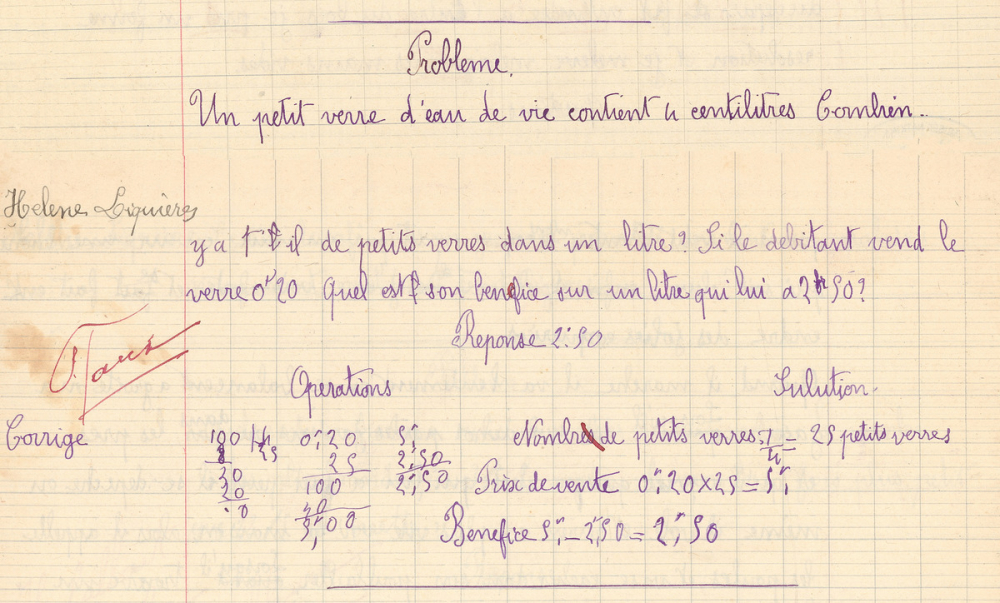 Probleme.
Un petit verre d'eau de vie contient 4 centilitres Combien..
Helene Liquières
y a t il de petits verres dans un litre? Si le debitant vend le
verre 0f20 Quel est son benefice sur un litre qui lui a 2f50?
Reponse 2f50
Faux
Operations Solution.
Corrige
100 4 0f,20 5f, Nombre de petits verres: 1/4 = 25 petits verres
8 25 25 2f,50
20 100 2f,50 Prix de vente 0f,20x25=5f,
20 40
.0 5f,00 Benefice 5f,-2f,50=2f,50